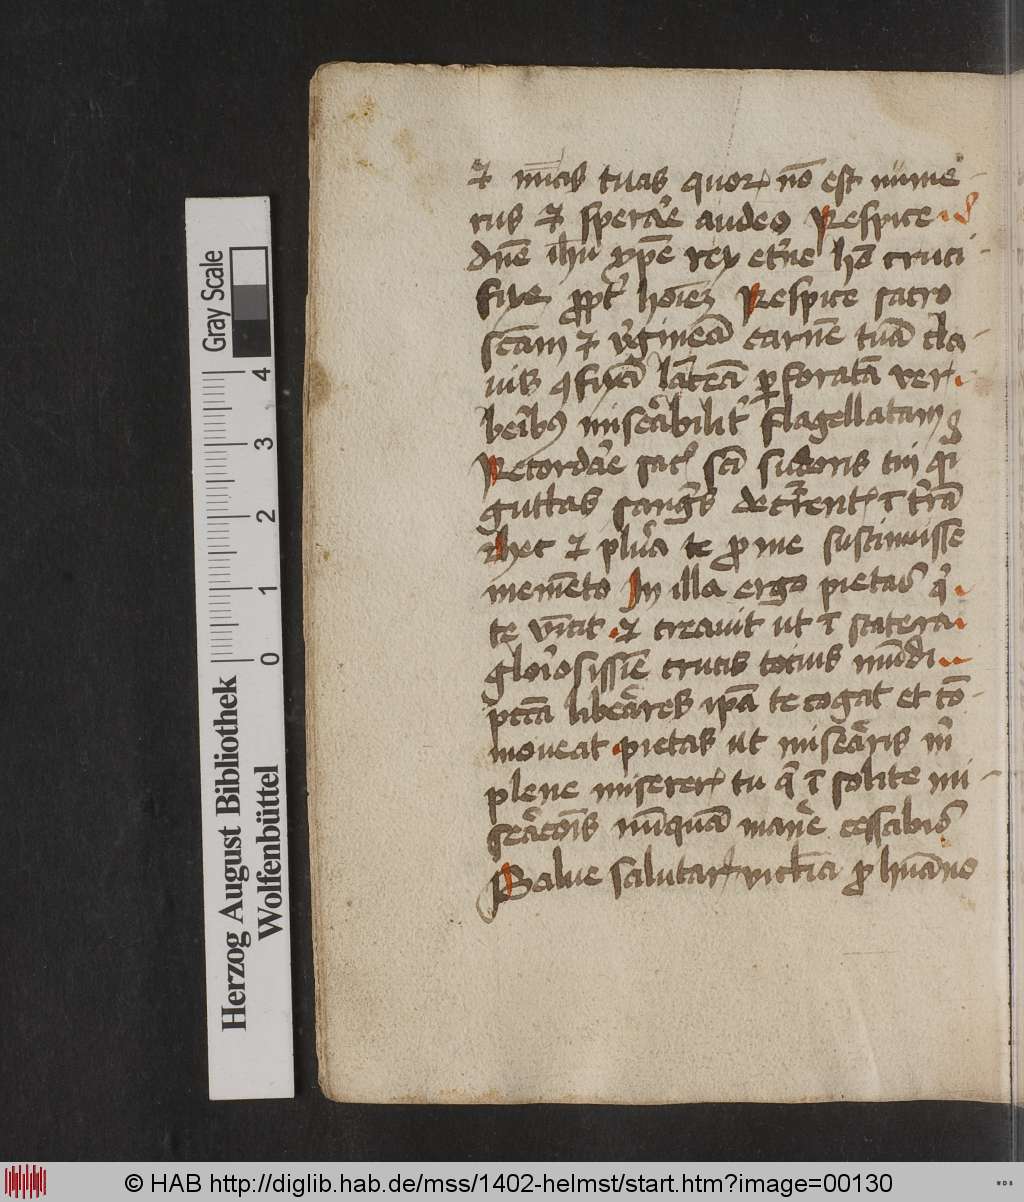 ⁊ mi̅cas tuas quor̷ no̅ est nume-
rus ⁊ sperar̕e audeo Respice
dn̅e ih̅u xp̅e rex et̕ne ho̅ cruci-
fixe pp̱t̕ ho̅i̅em Respice sacro
sc̅am ⁊ v̕ginea̅ carne̅ tua̅ cla-
uis ꝯfixa̅ la̅cea̅ ꝑforata̅ ver
beribꝰ misẽabilit̕ flagellatam
Recordar̕e sac̕ sci̅ sudoris tui q̕i
guttas sang̕s decr̕rent̷ i̅ t̕ra̅
hec ⁊ plur̕a te ꝓ me sustinuisse
meme̅to In illa ergo pietas q̕
te vi̅cit ⁊ creauit ut i̅ statera
glor̕iosissi̅e crucis tocius mu̅di
pcc̅a liberares ip̅a te cogat et co̅-
moueat pietas ut misẽaris m̕
plene miserer̷ tu q̕ i̅ solite mi-
sẽaco̅is nu̅qua̅ maner̕e cessabis
Salue salutar̷ victi̅a ꝓ hu̅ano
Gray Scale
0 1 2 3 4
Herzog August Bibliothek
Wolfenbüttel
© HAB http://diglib.hab.de/mss/1402-helmst/start.htm?image=00130